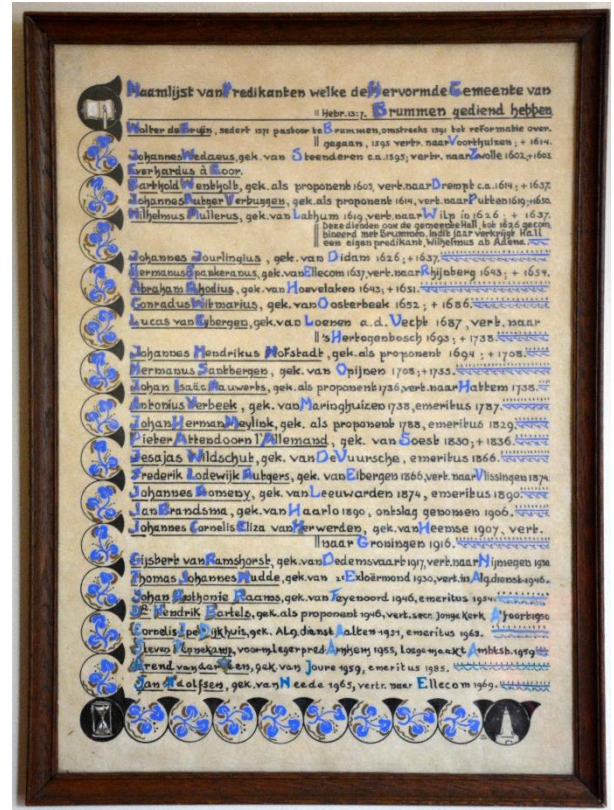 Naamlijst van Predikanten welke de Hervormde Gemeente van
Hebr. 13:7. Brummen gediend hebben
Walter de Bruijn, sedert 1571 pastoor te Brummen, omstreeks 1591 tot reformatie over.
gegaan, 1595 vertr. naar Voorthuizen; + 1614.
Johannes Wedaeus, gek. van Steenderen c.a. 1595; vertr. naar Zwolle 1602, +1603
Everhardus à Coor.
Barthold Wentholt, gek. als proponent 1605, vert. naar Drempt c.a. 1614; + 1637.
Johannes Rutger Verbuggen, gek. als proponent 1614, vert. naar Putten 1619; +1650.
Wilhelmus Mullerus, gek. van Lathum 1619, vert. naar Wilp in 1626; + 1637.
Deze dienden ook de gemeente Hall, tot 1626 gecom
bineerd met Brummen. In dit jaar verkrijgt Hall
een eigen predikant, Wilhelmus ab Adena.
Johannes Jourlingius, gek. van Didam 1626; +1637.
Hermanus Spankeranus, gek. van Ellecom 1637, vert. naar Rhijnberg 1643; + 1654.
Abraham Rhodius, gek. van Hoevelaken 1643; +1651.
Conradus Witmarius, gek. van Oosterbeek 1652; +1686.
Lucas van Eybergen, gek. van Loenen a.d. Vecht 1687, vert. naar
's Hertogenbosch 1693; + 1738.
Johannes Hendrikus Hofstadt, gek. als proponent 1694; +1708.
Hermanus Santbergen, gek. van Opijnen 1708; +1735.
Johan Isaäc Mauwerts, gek. als proponent 1736, vert. naar Hattem 1738.
Antonius Verbeek, gek. van Maringhuizen 1738, emeritus 1787.
Johan Herman Meylink, gek. als proponent 1788, emeritus 1829.
Pieter Attendoorn l'Allemand, gek. van Soest 1830; +1836.
Jesajas Wildschut, gek. van De Vuursche, emeritus 1866.
Frederik Lodewijk Rutgers, gek. van Eibergen 1866, vert. naar Vlissingen 1874
Johannes Homeny, gek. van Leeuwarden 1874, emeritus 1890.
Jan Brandsma, gek. van Haarlo 1890, ontslag genomen 1906.
Johannes Cornelis Eliza van Herwerden, gek. van Heemse 1907, vert.
naar Groningen 1916.
Gijsbert van Ramshorst, gek. van Dedemsvaart 1917, vert. naar Nijmegen 1930
Thomas Johannes Mudde, gek. van 2e Exloërmond 1930, vert. in Alg. dienst 1946.
Johan Anthonie Raams, gek. van Feyenoord 1946, emeritus 1954.
Dr. Hendrik Bartels, gek. als proponent 1946, vert. secr. Jonge Kerk A'foort 1950
Cornelis Ype Dijkhuis, gek. Alg. dienst Aalten 1951, emeritus 1963.
Steven Pennekamp, voorm. legerpred. Arnhem 1955, losgemaakt Ambtsb. 1959
Arend van der Veen, gek. van Joure 1959, emeritus 1985.
Jan Adolfsen, gek. van Neede 1965, vertr. naar Ellecom 1969.